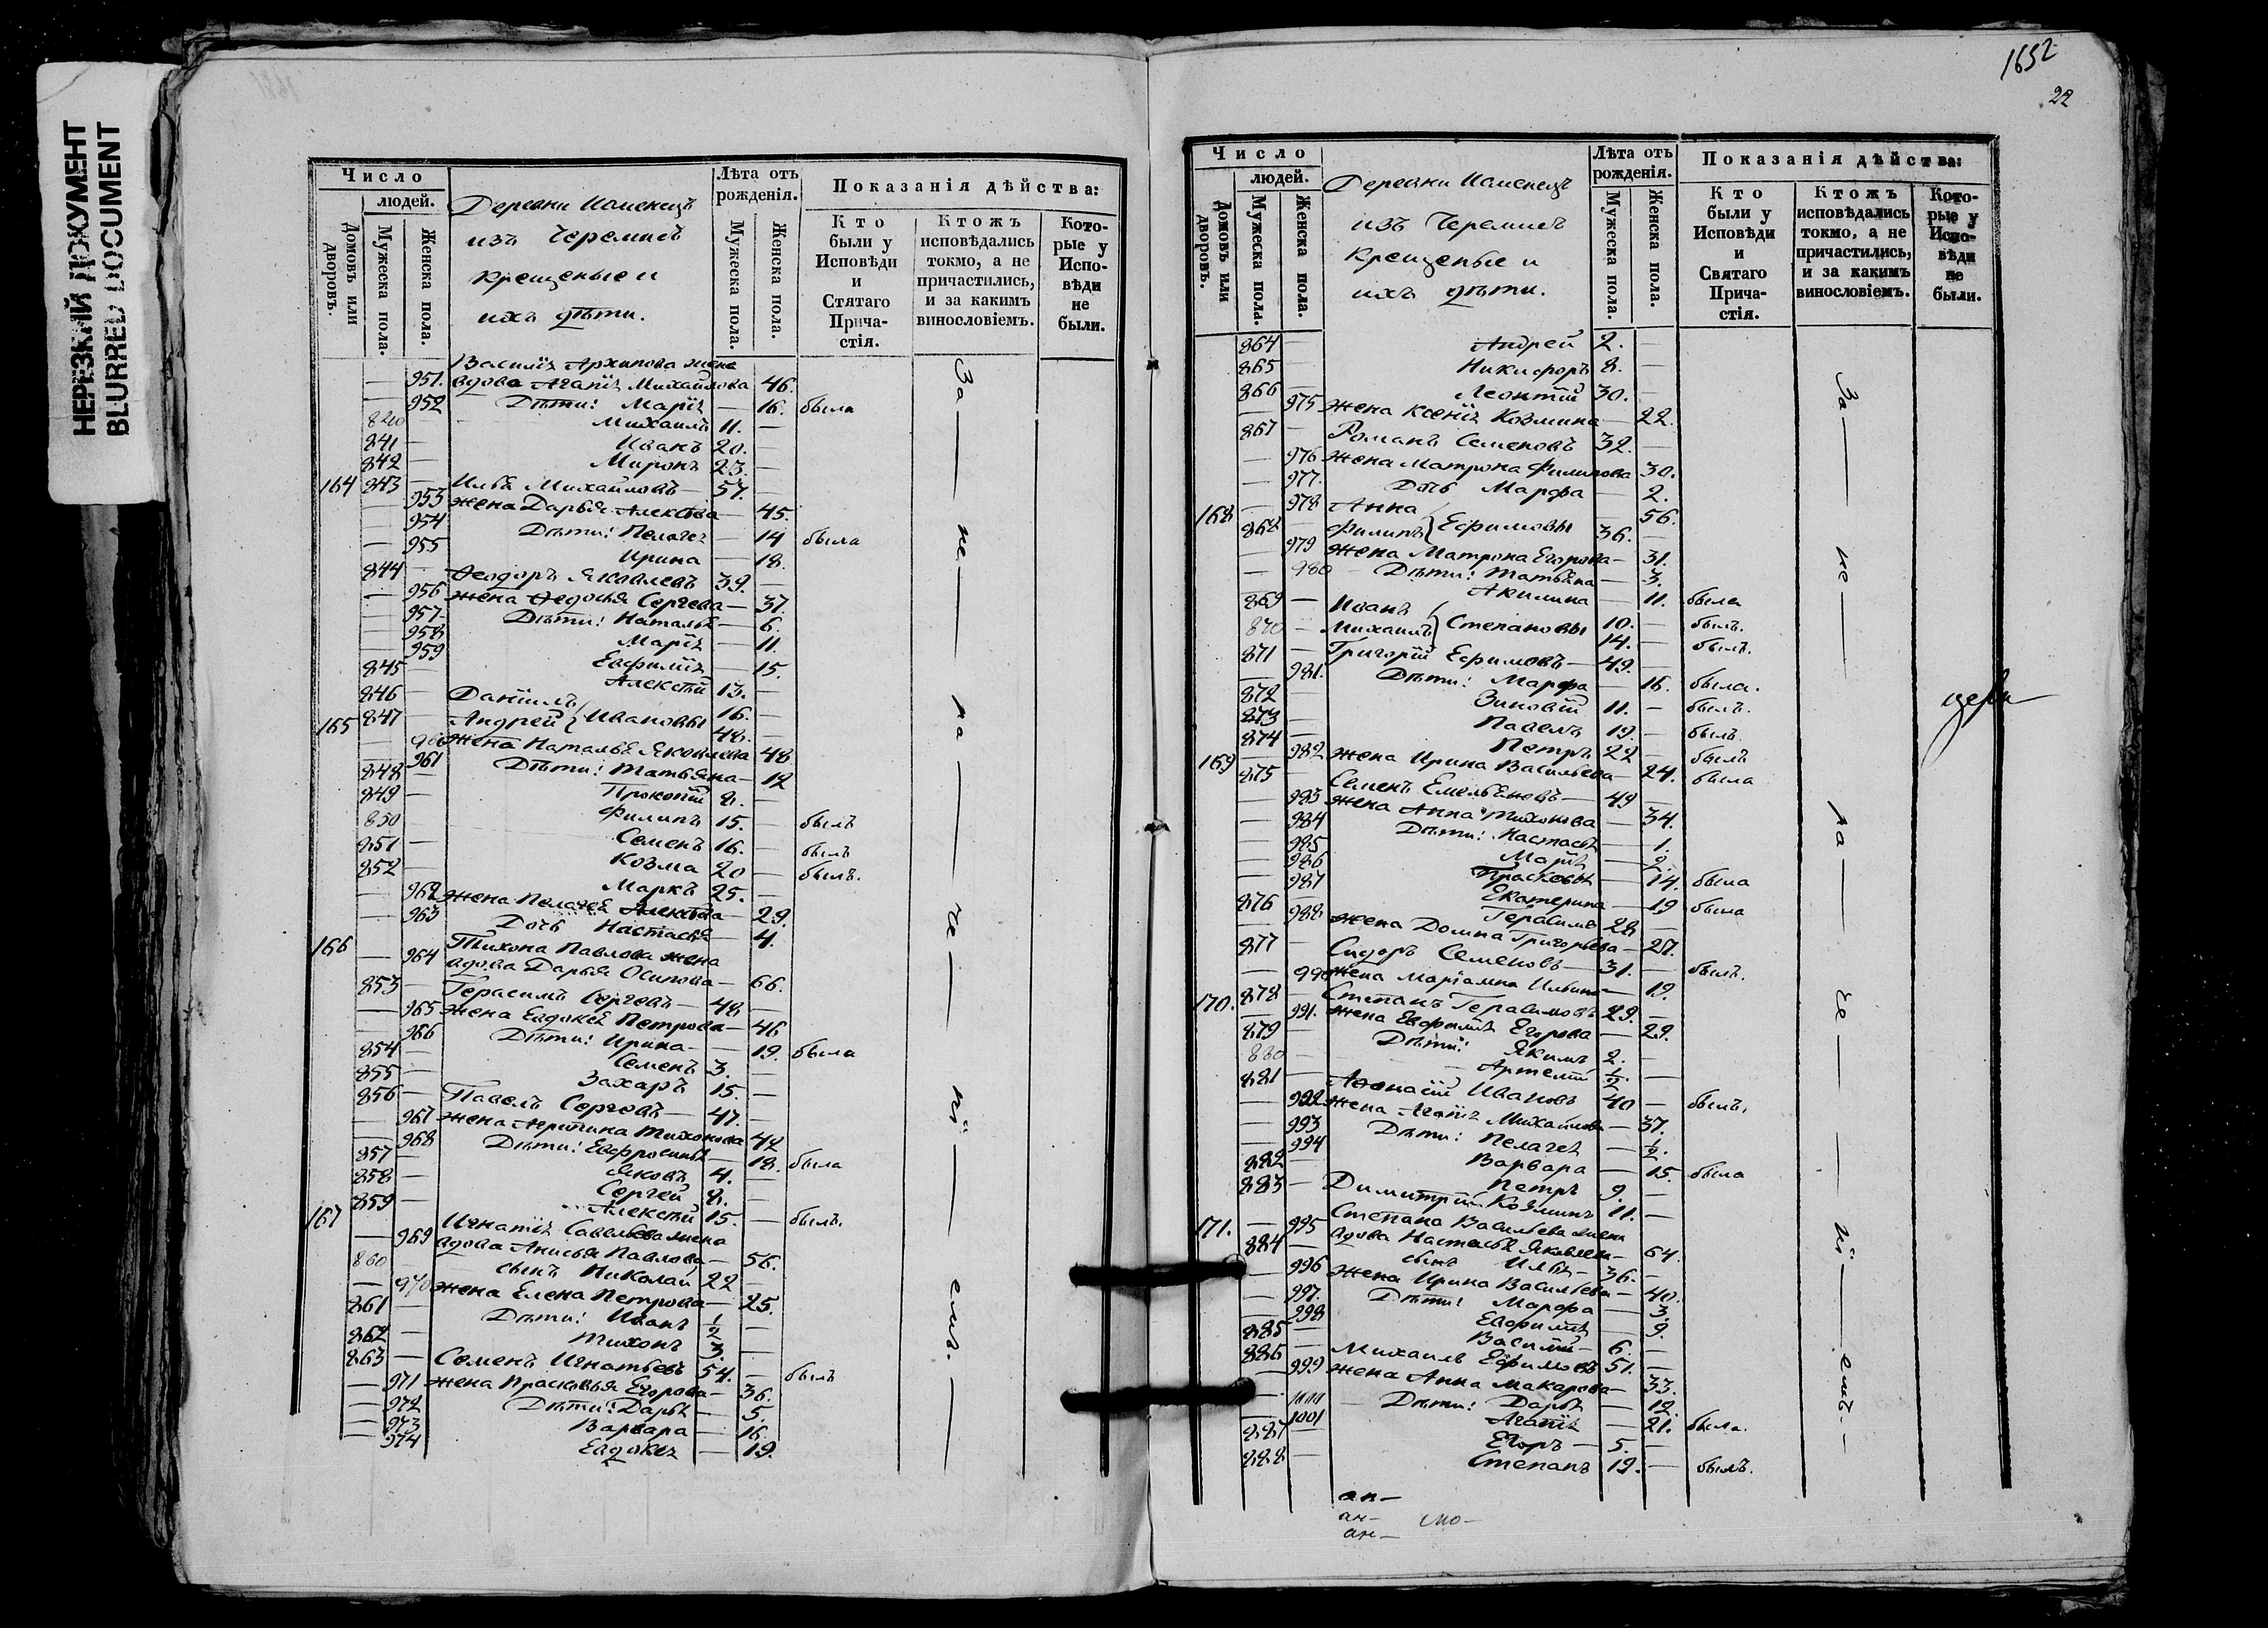 НЕРЕЗКИЙ ДОКУМЕНТ
BLURRED DOCUMENT
Число
людей.
Домовъ или дворовъ.
Мужеска пола.
Женска пола.
Деревни Каменецъ
изъ Черемисъ
крещеные и
ихъ дѣти.
Лѣта отъ рожденія.
Мужеска пола.
Женска пола.
Показанія дѣйства:
Кто были у Исповѣди и Стятаго Прича-стія.
Ктожъ исповѣдались токмо, а не причастились, и за какимъ винословіемъ.
Кото-рые у Испо-вѣди не были.
Василія Архипова жена
951. вдова Агапія Михайлова 46.
952 Дѣти: Марія — 16. была
840 Михаилъ 11. —
841 — Иванъ 20. —
842 — Миронъ 23. —
164 843 — Илья Михайловъ — 57. —
953 жена Дарья Алексѣева — 45.
954 Дѣти: Пелагея — 14 была
955 Ирина — 18.
844 — Ѳеодоръ Яковлевъ 39. —
956 жена Ѳедосья Сергева — 37.
957 Дѣти: Наталья — 6.
958 Марія — 11.
959 Евфимія — 15.
845 — Алексѣй 13. —
846 — Даніилъ 16. —
165 847 — Андрей } Ивановы 48. —
960 жена Наталья Яковлева 48
961 Дѣти: Татьяна — 12
848 — Прокопій 8. —
849 — Филипъ 15. — былъ
850 Семенъ 16. — былъ
851 — Козма 20 — былъ.
852 — Маркъ 25. —
962 жена Пелагея Алексѣева — 29.
963 Дочь Настасья — 4.
166 Тихона Павлова жена
964 вдова Дарья Осипова — 66.
853 — Герасимъ Сергевъ — 48
965 жена Евдокея Петрова — 46
966 Дѣти: Ирина — 19. была
854 — Семенъ 3. —
855 — Захаръ 15. —
856 — Павелъ Сергевъ — 47. —
967 жена Тихонова 42
968 Дѣти: Евфросинья — 18. была
857 — Яковъ 4. —
858 — Сергей 8. —
859 — Алексѣй 15. — былъ.
167 Игнатія Савельева жена
969 вдова Анисья Павлова — 56.
860 сынъ Николай 22 —
970 жена Елена Петрова — 25.
861 — Дѣти: Иванъ ½ —
862 — Тихонъ 3. —
863 — Семенъ Игнатьевъ 54. — былъ
971 жена Прасковья Егорова — 36.
972 Дѣти: Дарья — 5.
973 Варвара — 16
974 Евдокея — 19.
За — не — ра — че — ні — емъ. —
1652
22
Число
людей.
Домовъ или дворовъ.
Мужеска пола.
Женска пола.
Деревни Каменецъ
изъ Черемисъ
крещеные и
ихъ дѣти.
Лѣта отъ рожденія.
Мужеска пола.
Женска пола.
Показанія дѣйства:
Кто были у Исповѣди и Святаго Прича-стія.
Ктожъ исповѣдались токмо, а не причастились, и за какимъ винословіемъ.
Кото-рые у Испо-вѣди не были.
864 — Андрей 2. —
865 Никифоръ 8. —
866 — Леонтій 30. —
975 жена Ксенія Козмина — 22.
867 — Романъ Семеновъ 32. —
976 жена Матрона Филипова 30.
977. Дочь Марфа — 2.
978 Анна 56.
168 868 — Филипъ } Ефимовы 36. —
979 жена Матрона Егорова — 31.
980 — Дѣти: Татьяна — 3.
Акилина — 11. была
869 — Иванъ 10. — былъ.
870 — Михаилъ } Степановы 14. — былъ.
871 — Григорій Ефимовъ — 49. —
981. Дѣти: Марфа — 16. была.
872 Зиновій 11. — былъ.
873 — Павелъ 19. — былъ.
874 — Петръ 22 — былъ
982 жена Ирина Васильева — 24. была
169 875 — Семенъ Емельяновъ — 49 —
983 жена Анна Тихонова — 34.
984 Дѣти: Настасья — 1.
985 Марія — 2.
986 Прасковья — 14. была
987 Екатерина — 19 была
876 Герасимъ 28 —
988 жена Домна Григорьева — 27.
877 — Сидоръ Семеновъ — 31. — былъ.
990 жена Маріамна Ильина — 19.
170. 878 — Степанъ Герасимовъ 29. —
991. жена Евфимія Егорова — 29.
879 — Дѣти: Якимъ 2. —
880 — Артемій ½. —
881 — Аѳонасій Ивановъ 40 — былъ.
992 жена Агапія Михайлова — 37.
993 Дѣти: Пелагея — ½.
994 Варвара — 15. была
882 — Петръ 9. —
883 — Димитрій Козминъ 11. —
Степана Васильева жена
171. — 995 вдова Настасья Яковлева — 64.
884 — сынъ Илья — 36. —
996 жена Ирина Васильева — 40.
997. Дѣти: Марфа — 3.
998 Евфимія — 9.
885 — Василій — 6. —
886 — Михаилъ Ефимовъ 51. —
999 жена Анна Макарова — 33.
— Дѣти: Дарья — 12.
1001 Агапія — 21. была.
887 — Егоръ — 5. —
888 — Степанъ 19. — былъ.
За — не — ра — че — ні — емъ. —